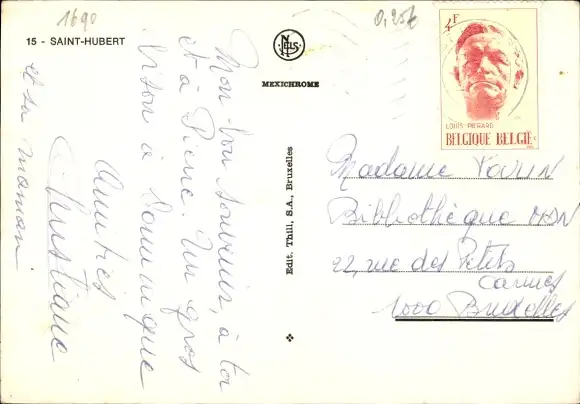 1690
0,25€
15 - SAINT-HUBERT
NELS
MEXICHROME
4F
LOUIS PIERARD
BELGIQUE BELGIË
Mon bon souvenir, à toi
et à Pierre. Un gros
bison à Dominique
Amitiés
Christiane
et sa maman
Edit. Thill, S.A., Bruxelles
Madame
Bibliothèque
22, rue des Petits
Carmes
1000 Bruxelles